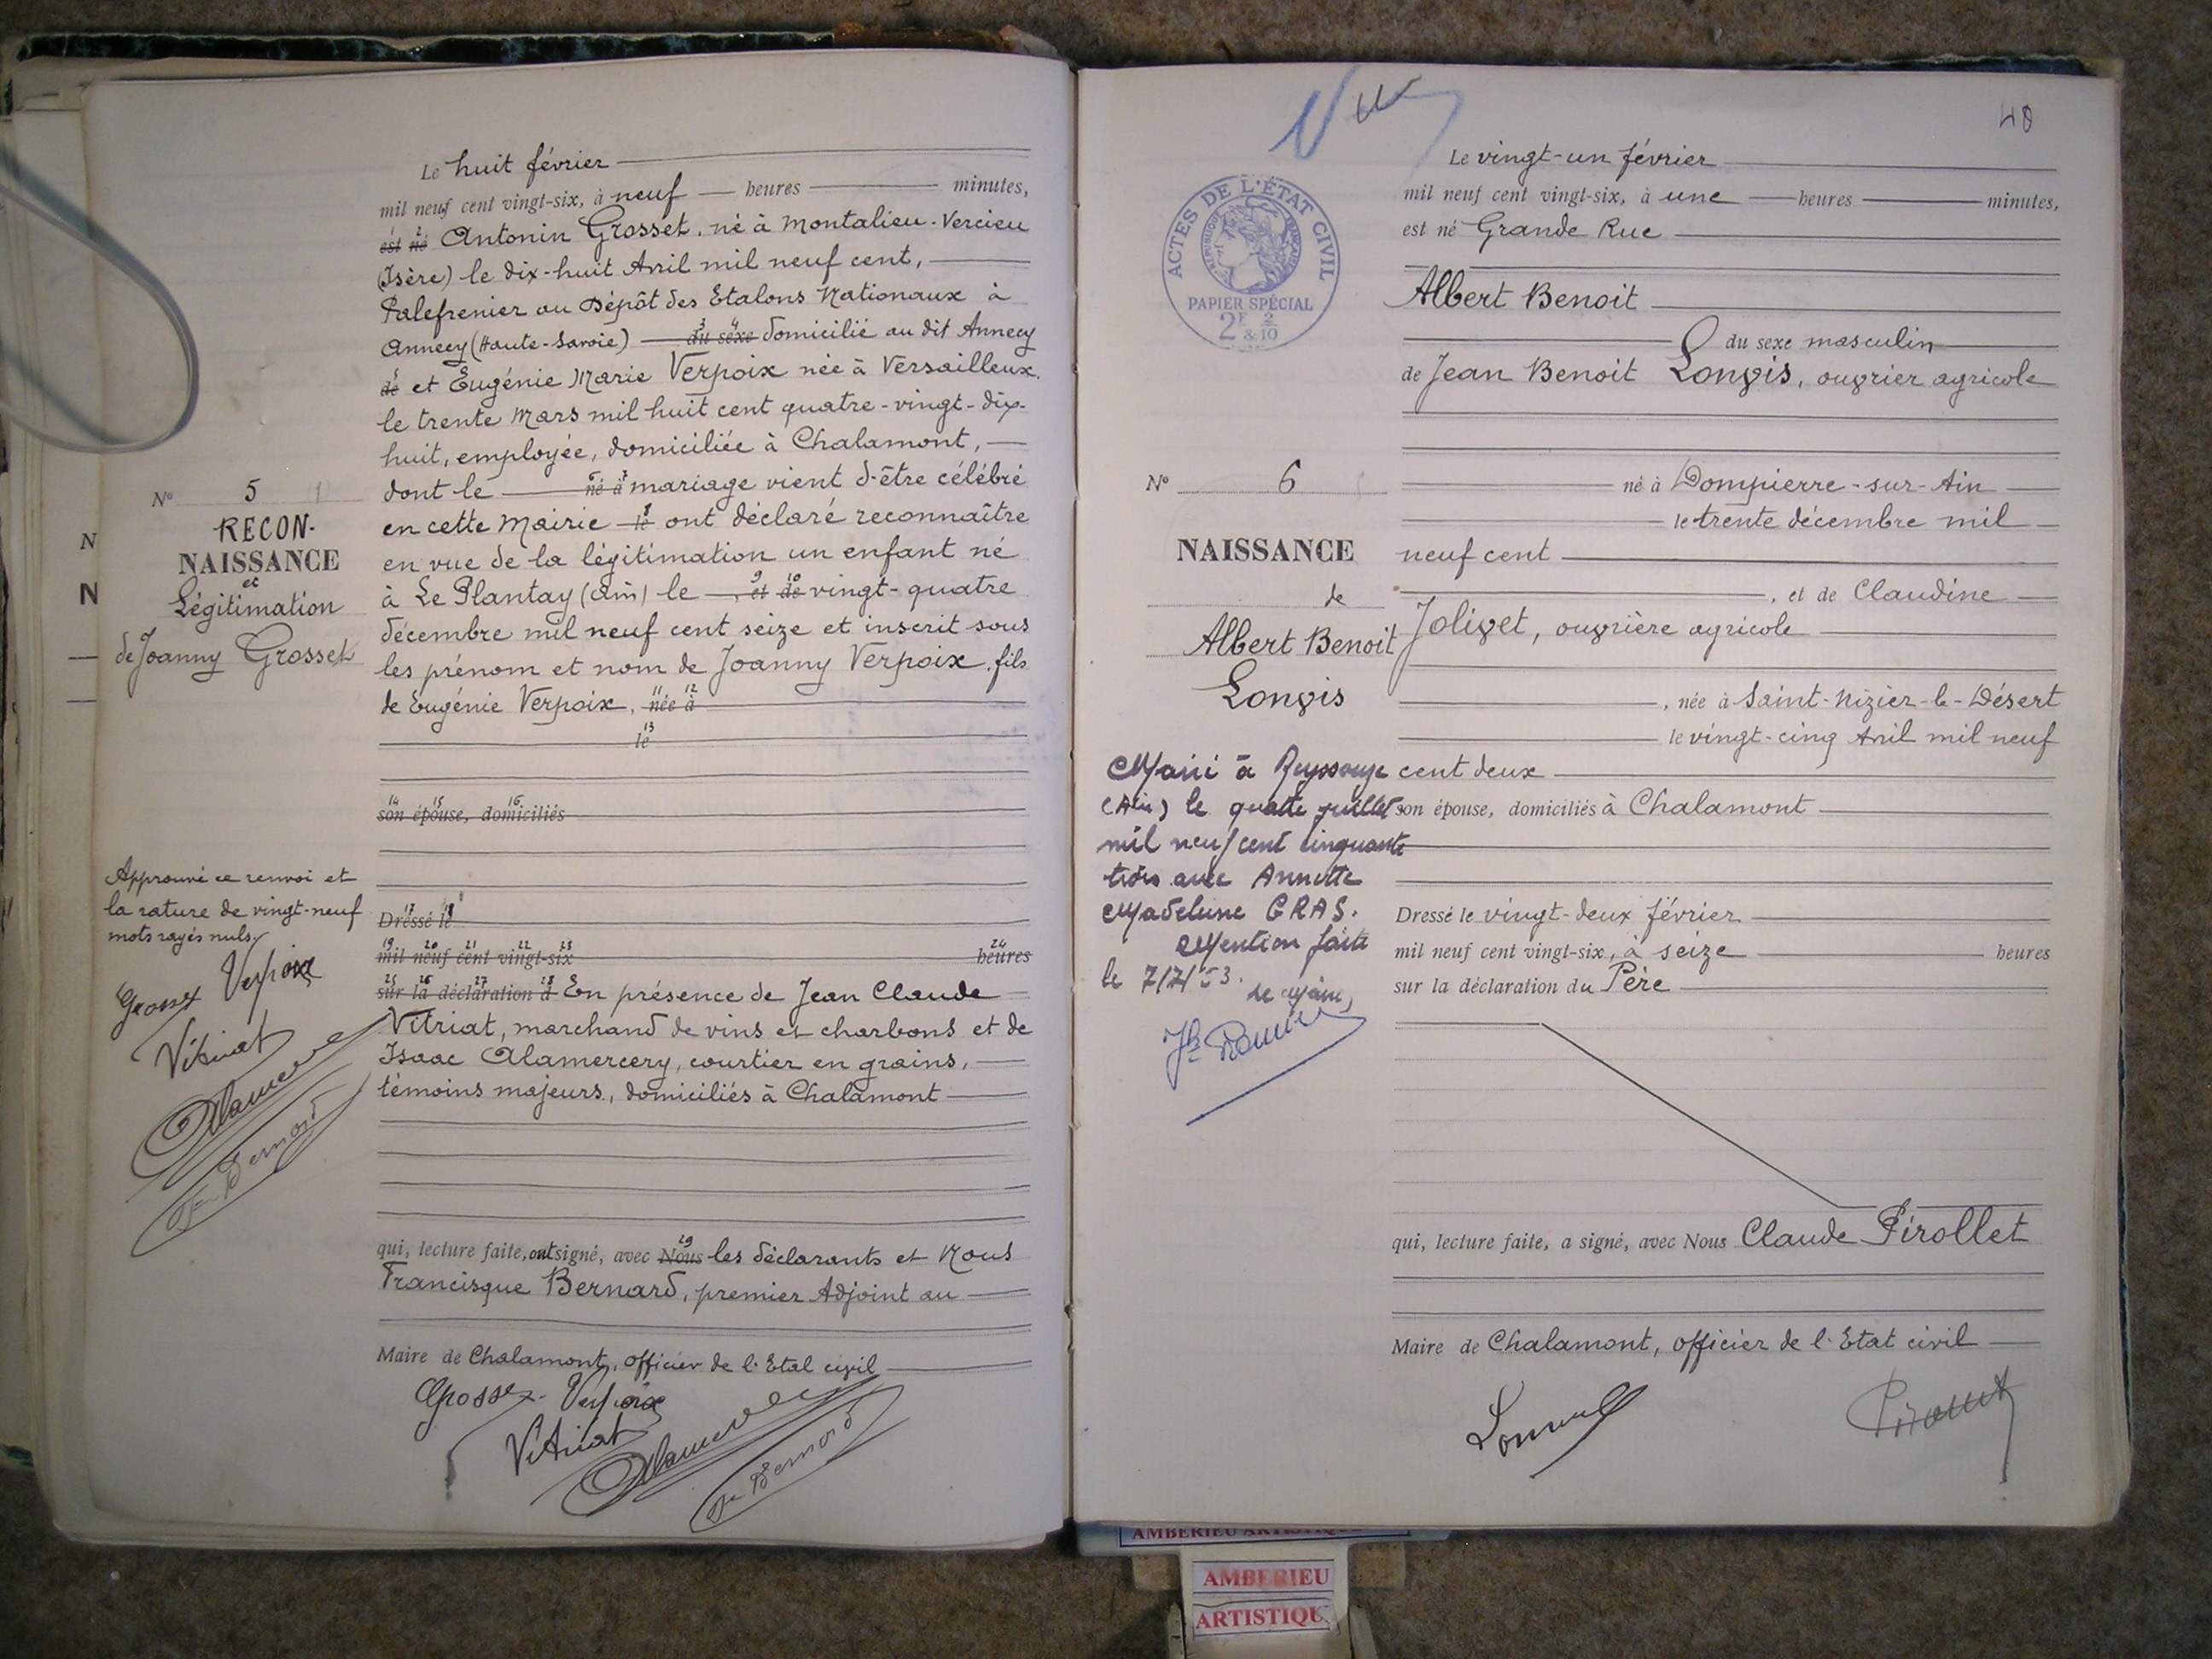 Le huit février
mil neuf cent vingt-six, à neuf heures minutes,
est né Antonin Grosset, né à Montalieu-Vercieu
(Isère) le dix-huit Avril mil neuf cent,
Palefrenier au Dépôt des Etalons Nationaux à
Annecy (Haute-Savoie) du sexe domicilié au dit Annecy
de et Eugénie Marie Verpoix née à Versailleux
le trente Mars mil huit cent quatre-vingt-dix-
huit, employée, domiciliée à Chalamont,
dont le né à mariage vient d'être célébré
en cette Mairie le ont déclaré reconnaître
en vue de la légitimation un enfant né
à Le Plantay (Ain) le , et de vingt-quatre
décembre mil neuf cent seize et inscrit sous
les prénom et nom de Joanny Verpoix, fils
de Eugénie Verpoix, née à
le
son épouse, domiciliés
Dressé le
mil neuf cent vingt-six heures
sur la déclaration d En présence de Jean Claude
Vitriat, marchand de vins et charbons et de
Isaac Alamercery, courtier en grains,
témoins majeurs, domiciliés à Chalamont
qui, lecture faite, ont signé, avec Nous les déclarants et Nous
Francisque Bernard, premier Adjoint au
Maire de Chalamont, officier de l'Etat civil
Grosset Verpoix
Vitriat
Alamercery
Bernard
N° 5
RECON-
NAISSANCE
et
Légitimation
de Joanny Grosset
Approuvé ce renvoi et
la rature de vingt-neuf
mots rayés nuls.
Grosset Verpoix
Vitriat
Alamercery
Bernard
N
N
40
ACTES DE L'ÉTAT CIVIL
RÉPUBLIQUE FRANÇAISE
PAPIER SPÉCIAL
2F 2
&10
Le vingt-un février
mil neuf cent vingt-six, à une heures minutes,
est né Grande Rue
Albert Benoit
du sexe masculin
de Jean Benoit Longis, ouvrier agricole
né à Dompierre-sur-Ain
le trente décembre mil
neuf cent
, et de Claudine
Jolivet, ouvrière agricole
, née à Saint-Nizier-le-Désert
le vingt-cinq Avril mil neuf
cent deux
son épouse, domiciliés à Chalamont
Dressé le vingt-deux février
mil neuf cent vingt-six, à seize heures
sur la déclaration du Père
qui, lecture faite, a signé, avec Nous Claude Pirollet
Maire de Chalamont, officier de l'Etat civil
N° 6
NAISSANCE
de
Albert Benoit
Longis
Marié à Reyssouze
(Ain) le quatre juillet
mil neuf cent cinquante
trois avec Annette
Madeleine GRAS.
Mention faite
le 7/7/53.
Le Maire,
AMBERIEU ARTISTIQUE
AMBERIEU
ARTISTIQU